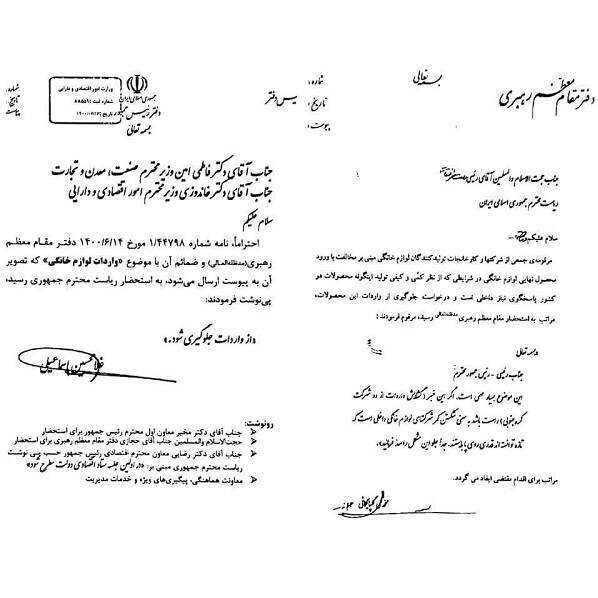 بسمه تعالی
دفتر مقام معظم رهبری
شماره:
تاریخ:
پیوست:
جناب حجت الاسلام والمسلمین آقای رئیسی
ریاست محترم جمهوری اسلامی ایران
سلام علیکم
مرقومه‌ی جمعی از شرکتها و کارخانجات تولیدکنندگان لوازم خانگی مبنی بر مخالفت با ورود
محصول نهایی لوازم خانگی در شرایطی که از نظر کمّی و کیفی تولید اینگونه محصولات در
کشور پاسخگوی نیاز داخلی است و درخواست جلوگیری از واردات این محصولات،
مراتب به استحضار مقام معظم رهبری مدظله‌العالی رسید، مرقوم فرمودند:
بسمه تعالی
جناب رئیسی - رئیس جمهور محترم
این موضوع بسیار مهمی است. اگر این خبر (گشایش واردات از دو شرکت
کره جنوبی) راست باشد به معنی شکستن کمر شرکتهای لوازم خانگی داخلی است که
تازه توانسته‌اند قدری روی پا بایستند. جداً جلو این مشکل را سد فرمائید.
مراتب برای اقدام مقتضی ایفاد می گردد.
محمدی گلپایگانی
جمهوری اسلامی ایران
دفتر رئیس جمهور
بسمه تعالی
وزارت امور اقتصادی و دارایی
شماره ثبت
تاریخ
شماره:
تاریخ:
پیوست:
رئیس دفتر
جناب آقای دکتر فاطمی امین وزیر محترم صنعت، معدن و تجارت
جناب آقای دکتر خاندوزی وزیر محترم امور اقتصادی و دارایی
سلام علیکم
احتراماً، نامه شماره ۱/۴۴۷۹۸ مورخ ۱۴۰۰/۶/۱۴ دفتر مقام معظم
رهبری(مدظله‌العالی) و ضمائم آن با موضوع «واردات لوازم خانگی» که تصویر
آن به پیوست ارسال می‌شود، به استحضار ریاست محترم جمهوری رسید،
پی‌نوشت فرمودند:
«از واردات جلوگیری شود.»
غلامحسین اسماعیلی
رونوشت:
جناب آقای دکتر مخبر معاون اول محترم رئیس جمهور برای استحضار
حجت‌الاسلام والمسلمین جناب آقای حجازی دفتر مقام معظم رهبری برای استحضار
جناب آقای دکتر رضایی معاون محترم اقتصادی رئیس جمهور حسب پی نوشت
ریاست محترم جمهوری مبنی بر: «در اولین جلسه ستاد اقتصادی دولت مطرح شود»
معاونت هماهنگی، پیگیری‌های ویژه و خدمات مدیریت